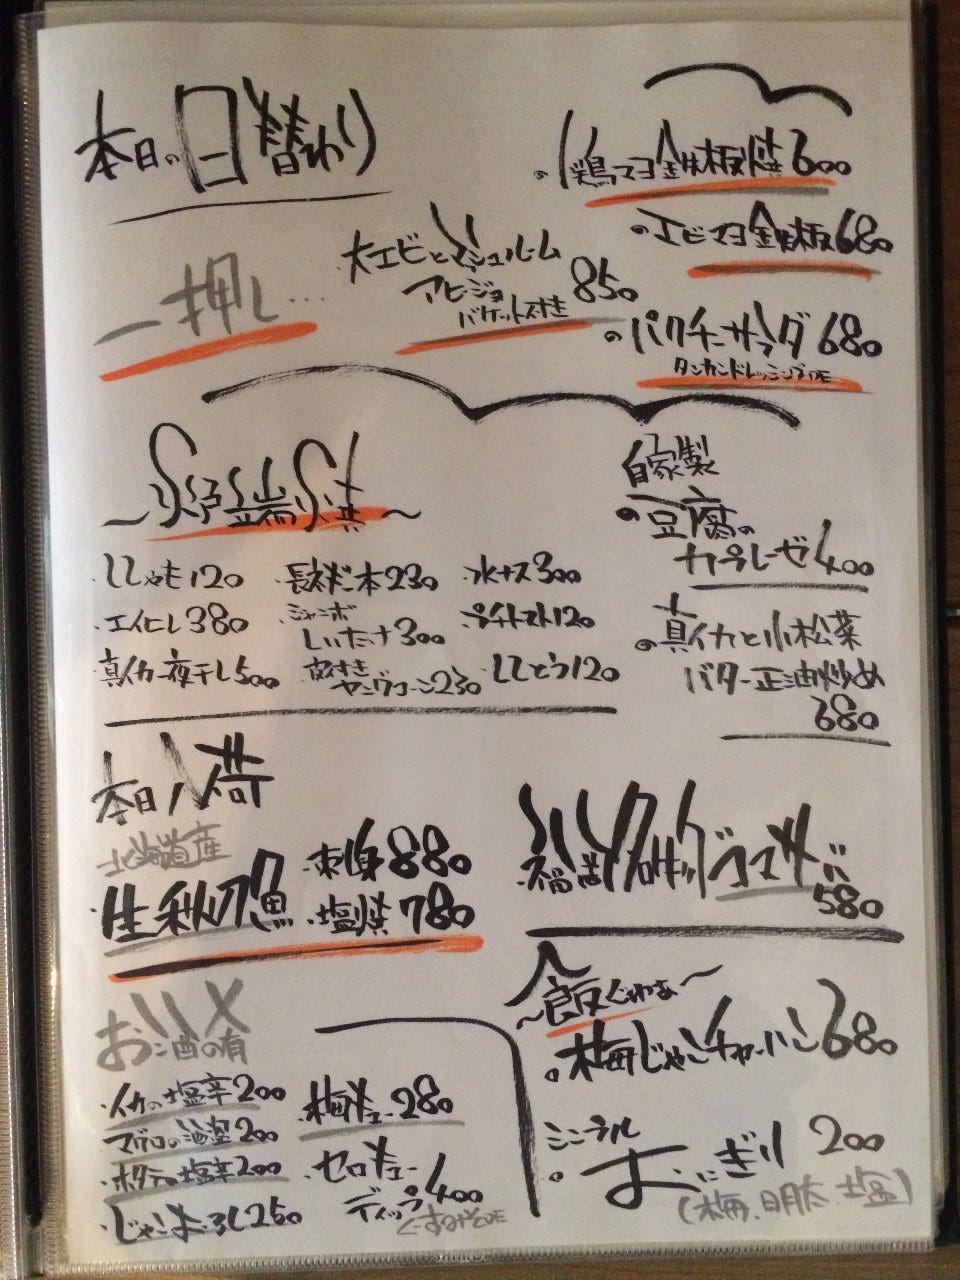 本日の日替わり
一押し…
・大エビとマッシュルーム
アヒージョ 850
バケット付き
・鶏マヨ鉄板焼 600
・エビマヨ鉄板 680
・パクチーサラダ 680
タンカンドレッシングDE
〜炉端焼〜
・ししゃも120
・エイヒレ380
・真イカ一夜干し500
・長ネギ一本230
・ジャンボ
しいたけ300
・皮付き
ヤングコーン230
・水ナス300
・プチトマト120
・ししとう120
自家製
・豆腐の
カプレーゼ400
・真イカと小松菜
バター正油炒め
680
本日ノ荷
北海道産
・生秋刀魚
・刺身880
・塩焼780
580
お酒の肴
・イカの塩辛200
・マグロの酒盗200
・ホタテの塩辛200
・じゃこおろし250
・梅キュー280
・セロキュー
ディップ400
くるみそDE
〜飯ぐゎぁ〜
・梅じゃこチャーハン680
・ミネラル
おにぎり 200
(梅、明太、塩)